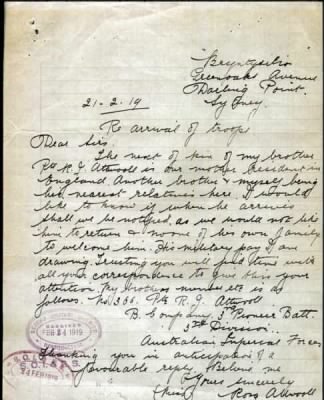 Greenoaks Avenue
Darling Point.
Sydney.
21-2-19
Re arrival of troops
Dear Sirs.
The next of kin of my brother
Pte R. J. Attwoll is our mother resident in
England. Another brother & myself being
his nearest relations here, I would
like to know if when he arrives
shall we be notified, as we would not like
him to return & none of his own family
to welcome him. His military pay I am
drawing. Trusting you will find time with
all your correspondence to give this your
attention. My brothers number etc is as
follows. No. 366. Pte R. J. Attwoll
B. Company. 3rd Pioneer Batt.
3rd Division.
Australian Imperial Forces
Thanking you in anticipation of a
favourable reply. Believe me
Yours sincerely
(Miss) Rose Attwoll
FEB 24 1919
24 FEB 1919